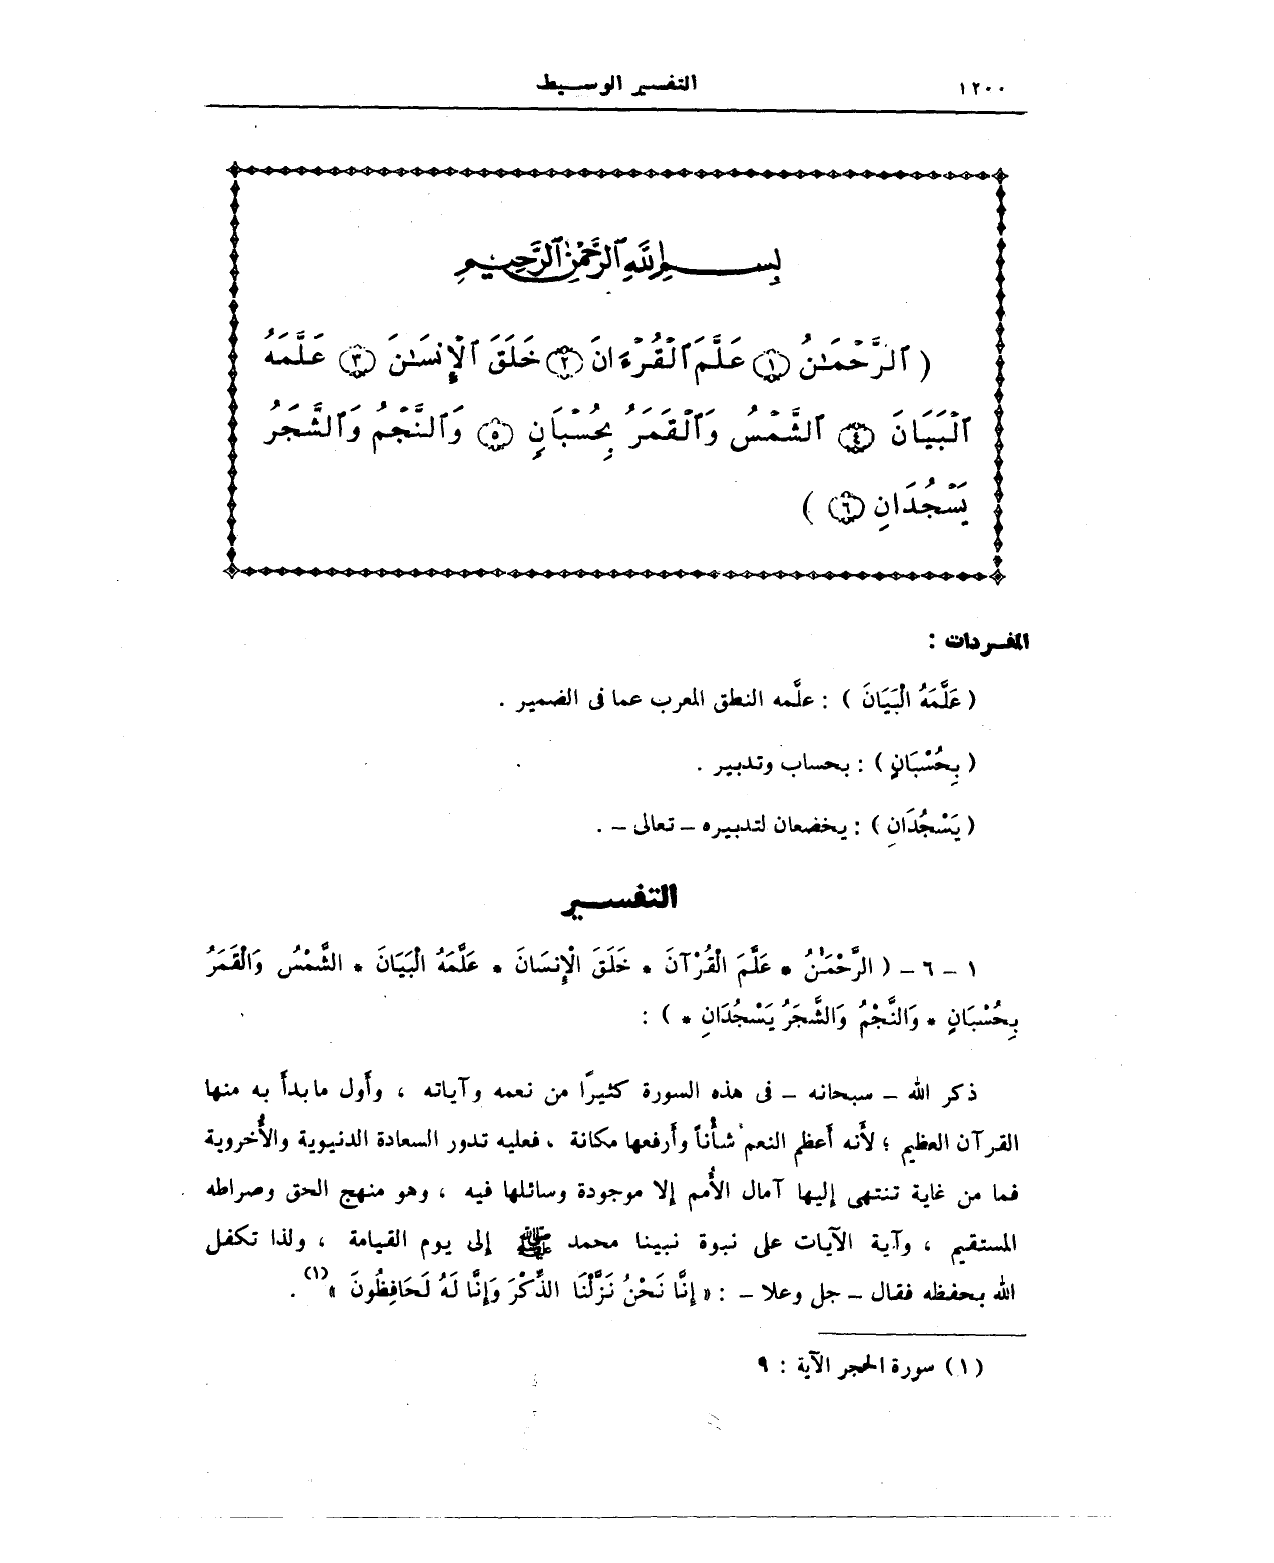 ١٢٠٠
التفسير الوسيط
بِسْمِ ٱللَّهِ ٱلرَّحْمَٰنِ ٱلرَّحِيمِ
( ٱلرَّحْمَـٰنُ ١ عَلَّمَ ٱلْقُرْءَانَ ٢ خَلَقَ ٱلْإِنسَـٰنَ ٣ عَلَّمَهُ
ٱلْبَيَانَ ٤ ٱلشَّمْسُ وَٱلْقَمَرُ بِحُسْبَانٍ ٥ وَٱلنَّجْمُ وَٱلشَّجَرُ
يَسْجُدَانِ ٦ )
المفردات :
( عَلَّمَهُ الْبَيَانَ ) : علَّمه النطق المعرب عما فى الضمير .
( بِحُسْبَانٍ ) : بحساب وتدبير .
( يَسْجُدَانِ ) : يخضعان لتدبيره – تعالى – .
التفسير
١ – ٦ – ( الرَّحْمَـٰنُ * عَلَّمَ الْقُرْآنَ * خَلَقَ الْإِنسَانَ * عَلَّمَهُ الْبَيَانَ * الشَّمْسُ وَالْقَمَرُ
بِحُسْبَانٍ * وَالنَّجْمُ وَالشَّجَرُ يَسْجُدَانِ * ) :
ذكر الله – سبحانه – فى هذه السورة كثيرًا من نعمه وآياته ، وأول مابدأ به منها
القرآن العظيم ؛ لأنه أعظم النعم شأنًا وأرفعها مكانة ، فعليه تدور السعادة الدنيوية والأُخروية
فما من غاية تنتهى إليها آمال الأُمم إلا موجودة وسائلها فيه ، وهو منهج الحق وصراطه
المستقيم ، وآية الآيات على نبوة نبينا محمد ﷺ إلى يوم القيامة ، ولذا تكفل
الله بحفظه فقال – جل وعلا – : « إِنَّا نَحْنُ نَزَّلْنَا الذِّكْرَ وَإِنَّا لَهُ لَحَافِظُونَ » (١) .
(١) سورة الحجر الآية : ٩